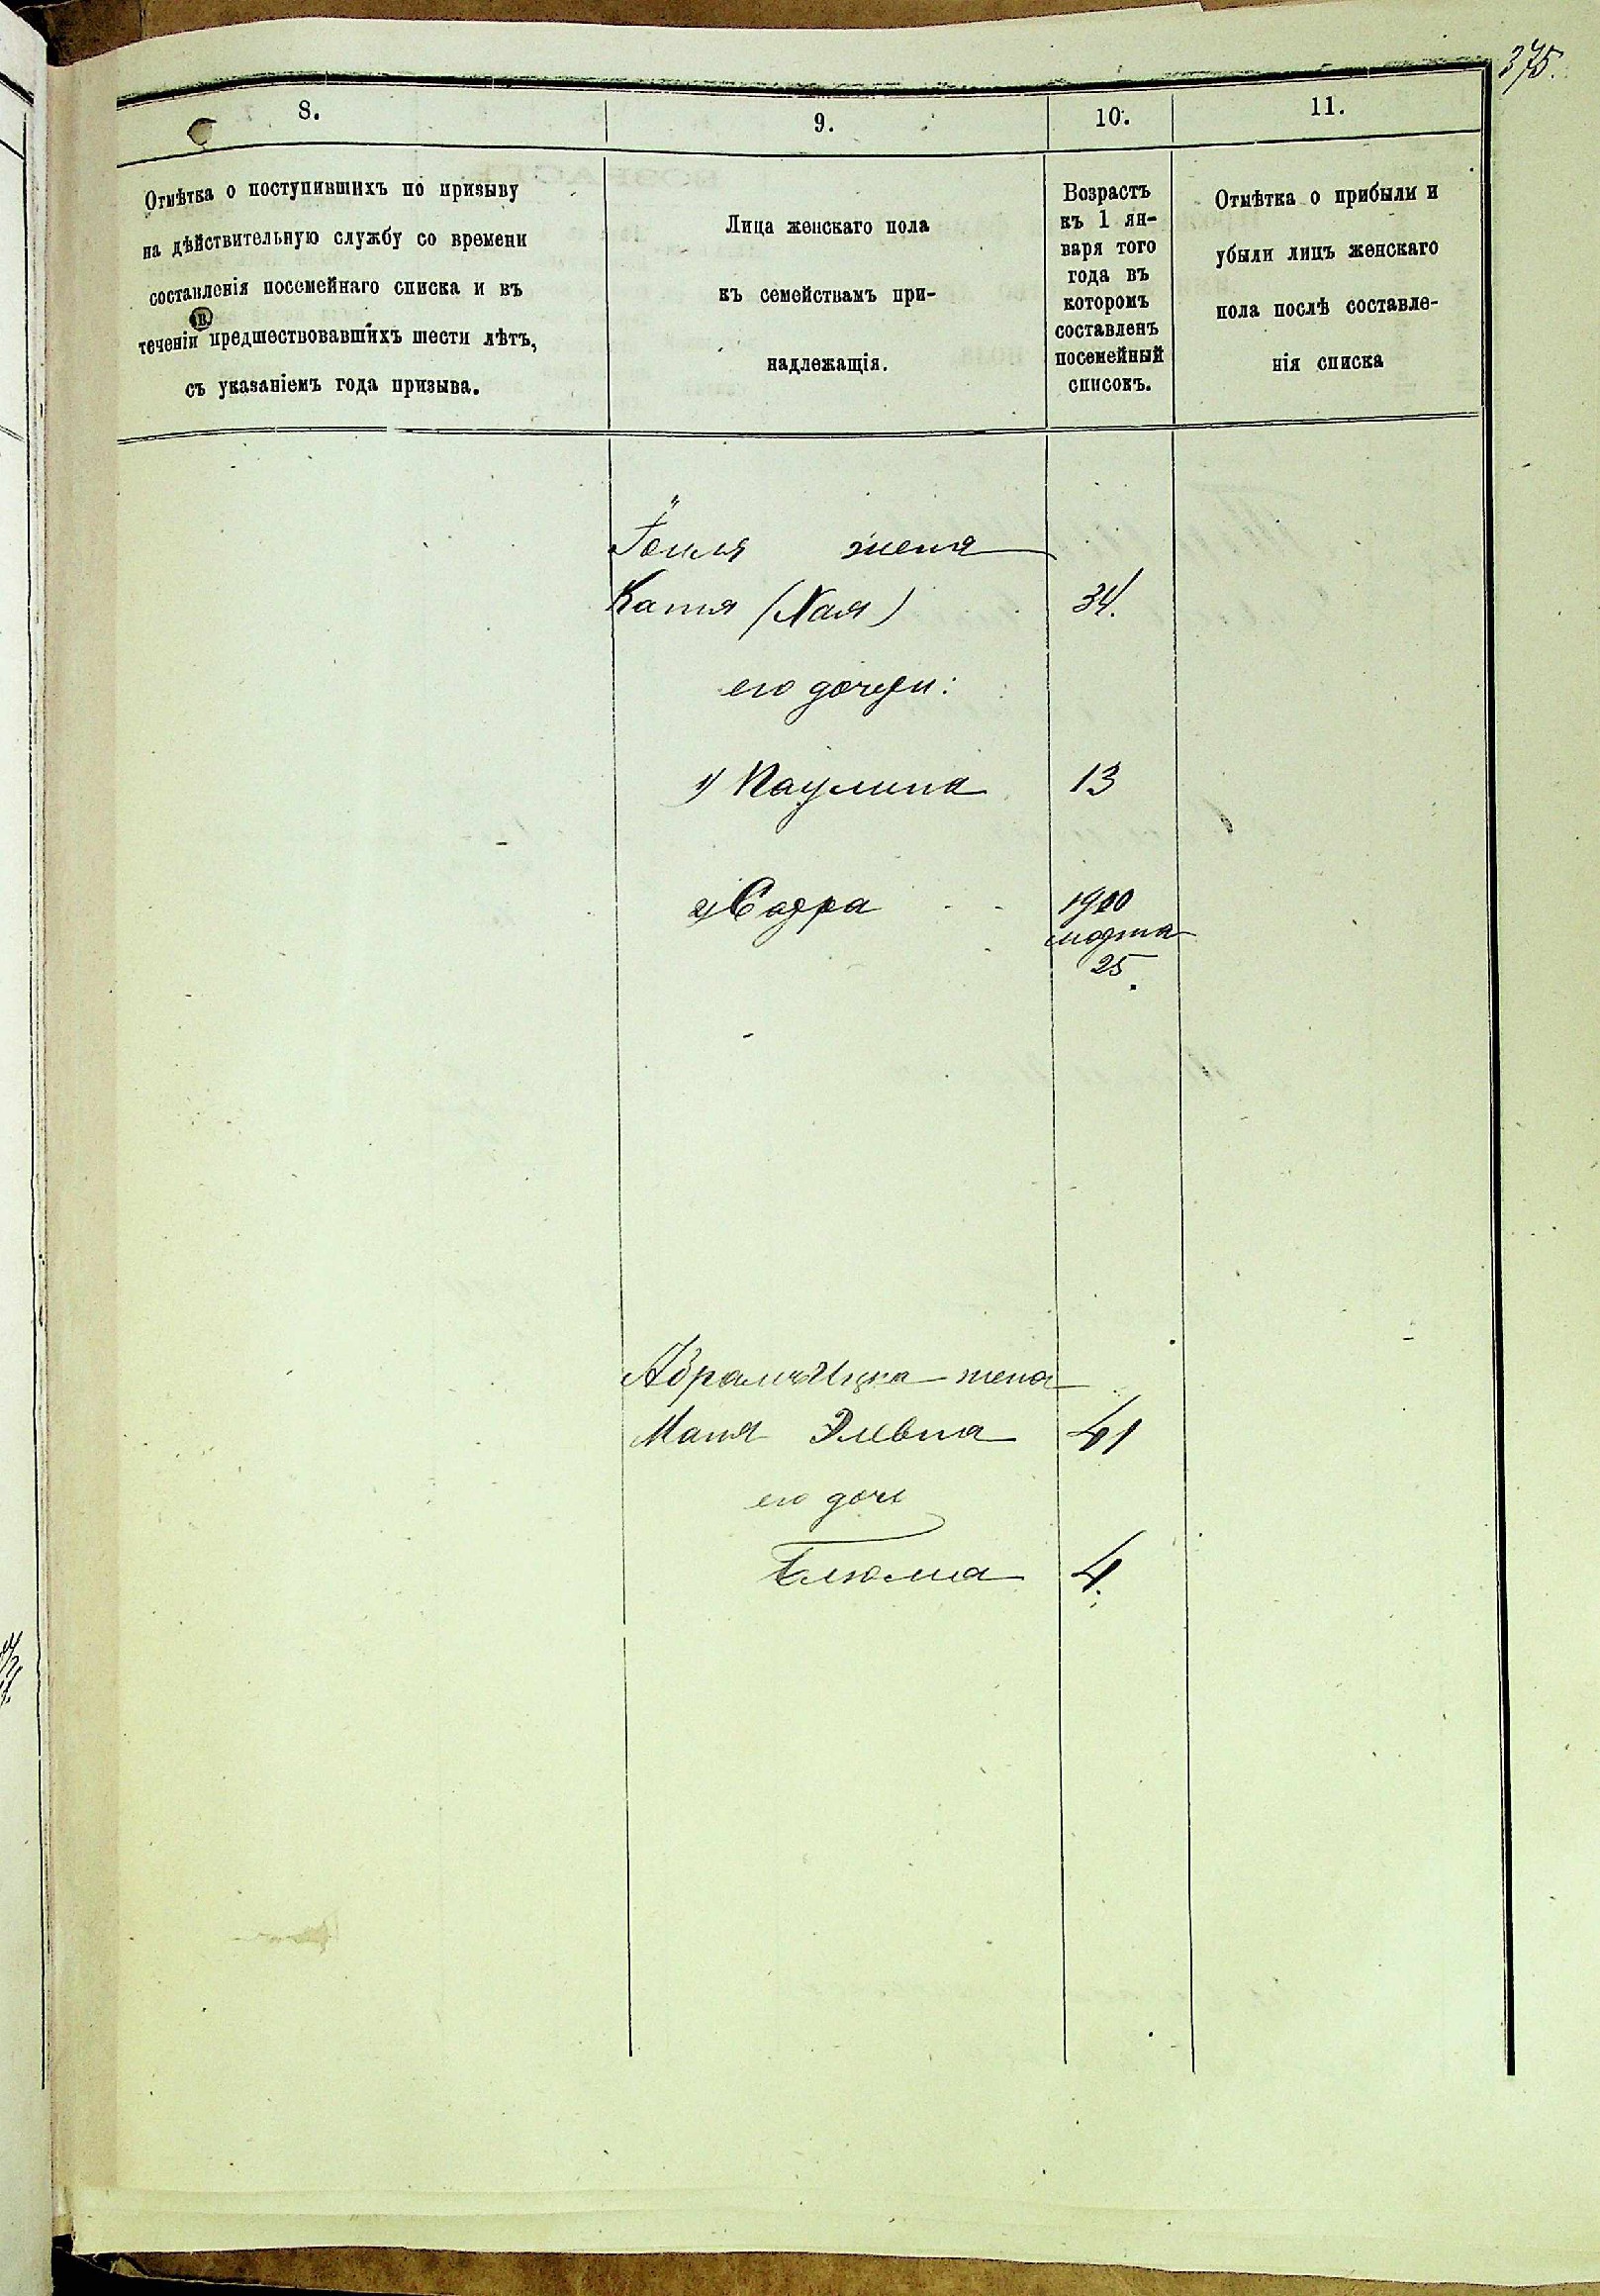 375.
8.
9.
10.
11.
Отмѣтка о поступившихъ по призыву
на дѣйствительную службу со времени
составленія посемейнаго списка и въ
теченіи предшествовавшихъ шести лѣтъ,
съ указаніемъ года призыва.
Лица женскаго пола
къ семействамъ при-
надлежащія.
Возрастъ
къ 1 ян-
варя того
года въ
которомъ
составленъ
посемейный
списокъ.
Отмѣтка о прибыли и
убыли лицъ женскаго
пола послѣ составле-
нія списка
жена
Катя (Хая) 34.
его дочери:
1) Паулина 13
2) Сарра 1900
марта
25.
Абрамъ Ицка жена
Маня Элевна 41
его дочь
Блюма 4.